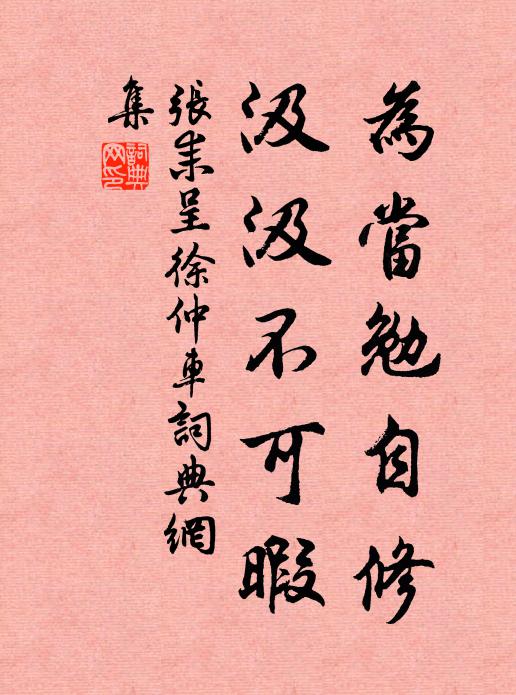 為當勉自修
汲汲不可暇
張耒呈徐仲車詞典網
集
詞典
网印